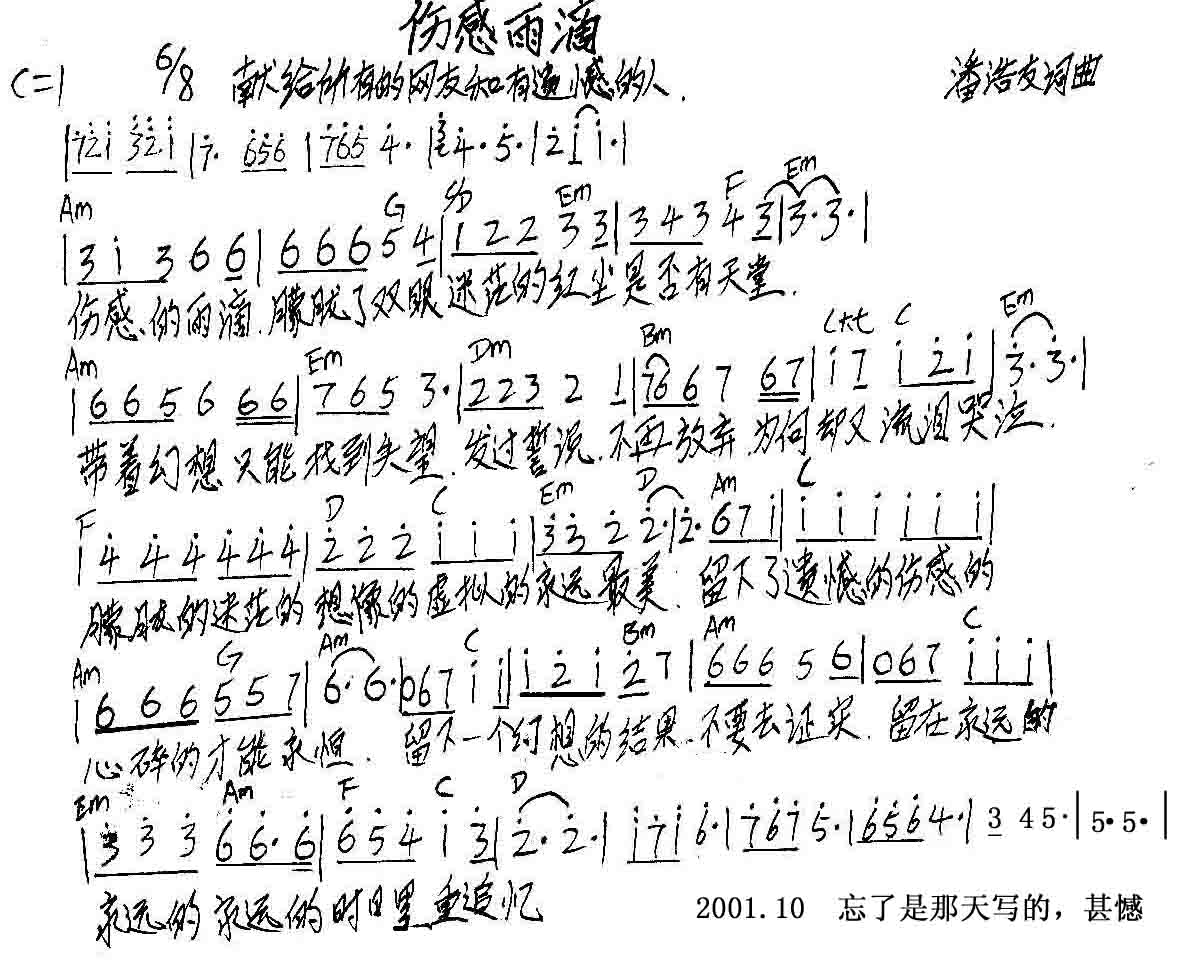 伤感雨滴
C=1 6/8 献给所有的网友和有遗憾的人. 潘浩友词曲
|7̇2̇1̇ 3̇2̇1̇|7̇. 6̇5̇6̇|7̇6̇5̇ 4̇.|4̇.5̇.|2̇1̇1̇.|
Am G Em F Em
|3 1̇ 3 6 6|6 6 6 5 4|1 2 2 3 3|3 4 3 4 3|3.3.|
伤感的雨滴.朦胧了双眼迷茫的红尘是否有天堂.
Am Em Dm Bm C C Em
|6 6 5 6 6 6|7 6 5 3.|2 2 3 2 1|7 6 6 7 6 7|1̇ 7 1̇ 2̇ 1̇|3̇.3̇.|
带着幻想只能找到失望.发过誓说.不再放弃.为何却又流泪哭泣.
F D C Em D Am C
|4̇ 4̇ 4̇ 4̇ 4̇ 4̇|2̇ 2̇ 2̇ 1̇ 1̇ 1̇|3̇ 3̇ 2̇ 2̇.|2̇. 6 7 1̇|1̇ 1̇ 1̇ 1̇ 1̇ 1̇|
朦胧的迷茫的想像的虚拟的永远最美.留下了遗憾的伤感的
Am G Am C Bm Am C
|6 6 6 5 5 7|6.6.|0 6 7 1̇ 1̇|1̇ 2̇ 1̇ 2̇ 7|6 6 6 5 6|0 6 7 1̇ 1̇ 1̇|
心碎的才能永恒.留下一个幻想的结果.不要去证实.留在永远的
Em Am F C D
|3̇ 3̇ 3̇ 6̇ 6̇. 6̇|6̇ 5̇ 4̇ 1̇ 3̇|2̇.2̇.|1̇ 7̇ 1̇ 6̇.|7̇ 6̇ 7̇ 5̇.|6̇ 5̇ 6̇ 4̇.|3 4 5.|5.5.|
永远的永远的时日里重追忆
2001.10 忘了是那天写的，甚憾